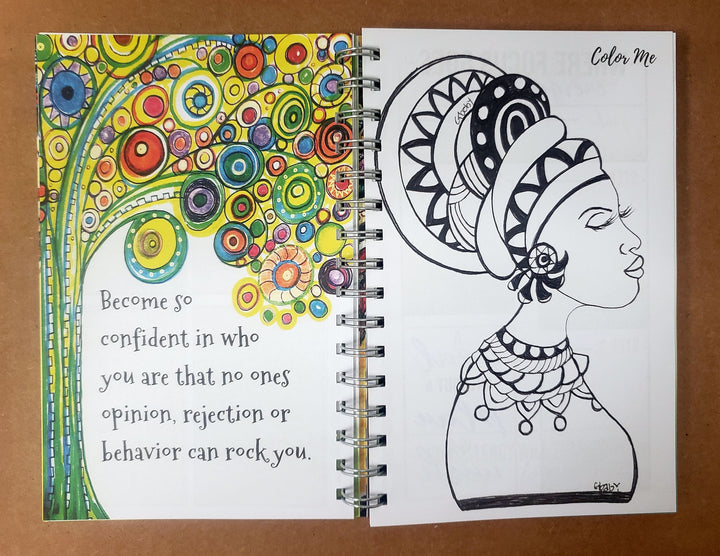 Become so
confident in who
you are that no ones
opinion, rejection or
behavior can rock you.
Color Me